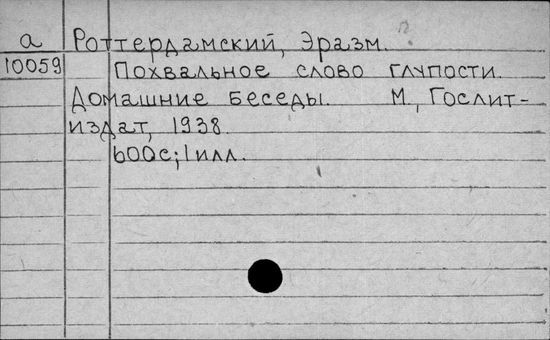 а Роттердамский, Эразм.
10059 Похвальное слово глупости.
Домашние беседы. М., Гослит-
издат, 1938.
600с; 1 илл.